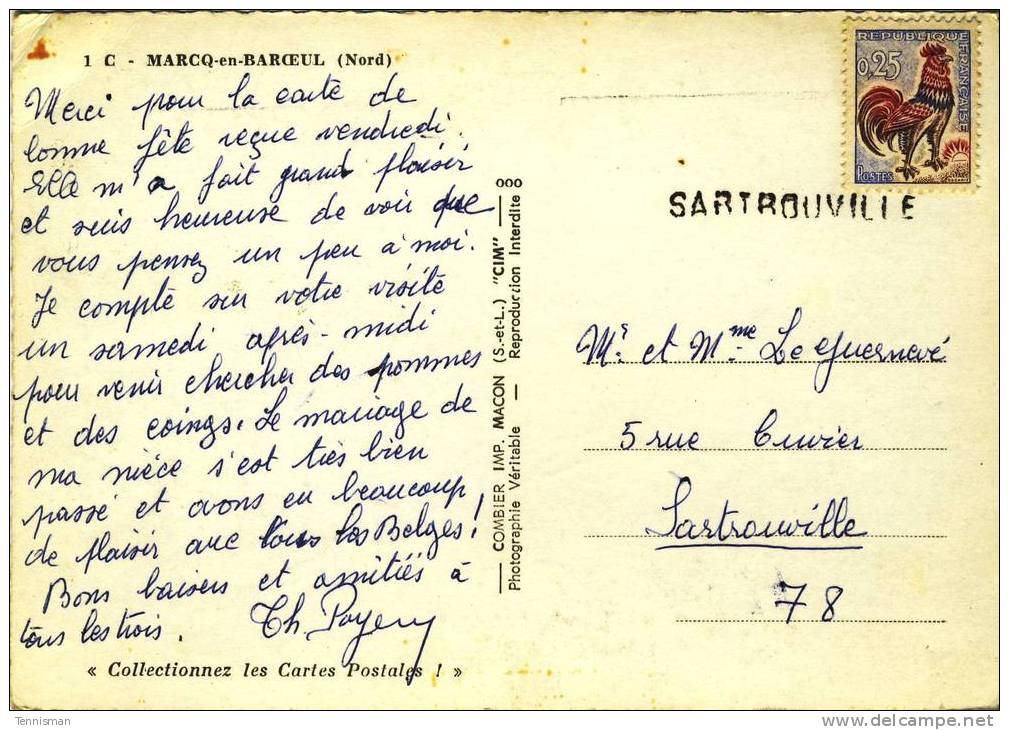 1 C - MARCQ-en-BARŒUL (Nord)
Merci pour la carte de
bonne fête reçue vendredi.
Elle m'a fait grand plaisir
et suis heureuse de voir que
vous pensez un peu à moi.
Je compte sur votre visite
un samedi après-midi
pour venir chercher des pommes
et des coings. Le mariage de
ma nièce s'est très bien
passé et avons eu beaucoup
de plaisir avec tous les Belges !
Bons baisers et amitiés à
tous les trois. Th.
« Collectionnez les Cartes Postales ! »
COMBIER IMP. MACON (S.-et-L.) "CIM" — 000
Photographie Véritable — Reproduction Interdite
REPUBLIQUE FRANÇAISE
0,25
POSTES
SARTROUVILLE
Mr et Mme Le Guernevé
5 rue Cuvier
Sartrouville
78
Tennisman
©delcampe.net